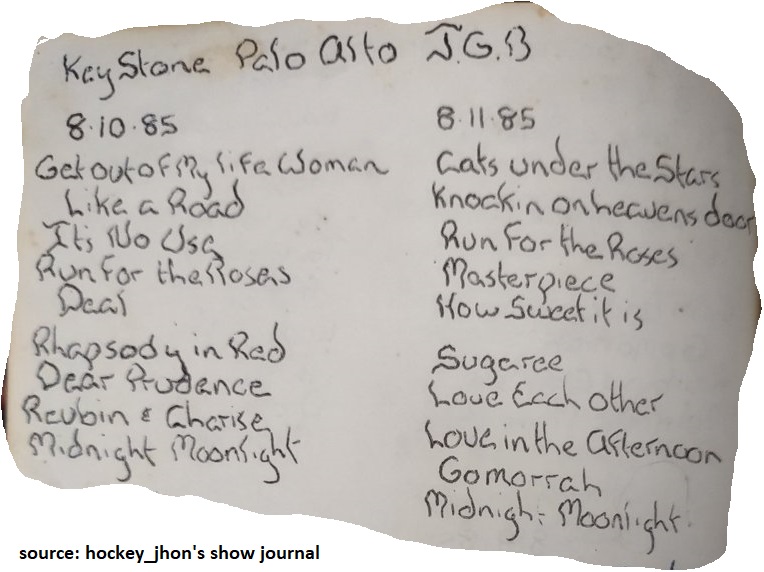 KeyStone Palo Alto J.G.B
8.10.85
Get out of My Life Woman
Like a Road
It's No Use
Run for the Roses
Deal
Rhapsody in Red
Dear Prudence
Reubin & Charise
Midnight Moonlight
8.11.85
Cats under the Stars
Knockin on heavens door
Run For the Roses
Masterpiece
How Sweet it is
Sugaree
Love Each other
Love in the Afternoon
Gomorrah
Midnight Moonlight
source: hockey_jhon's show journal